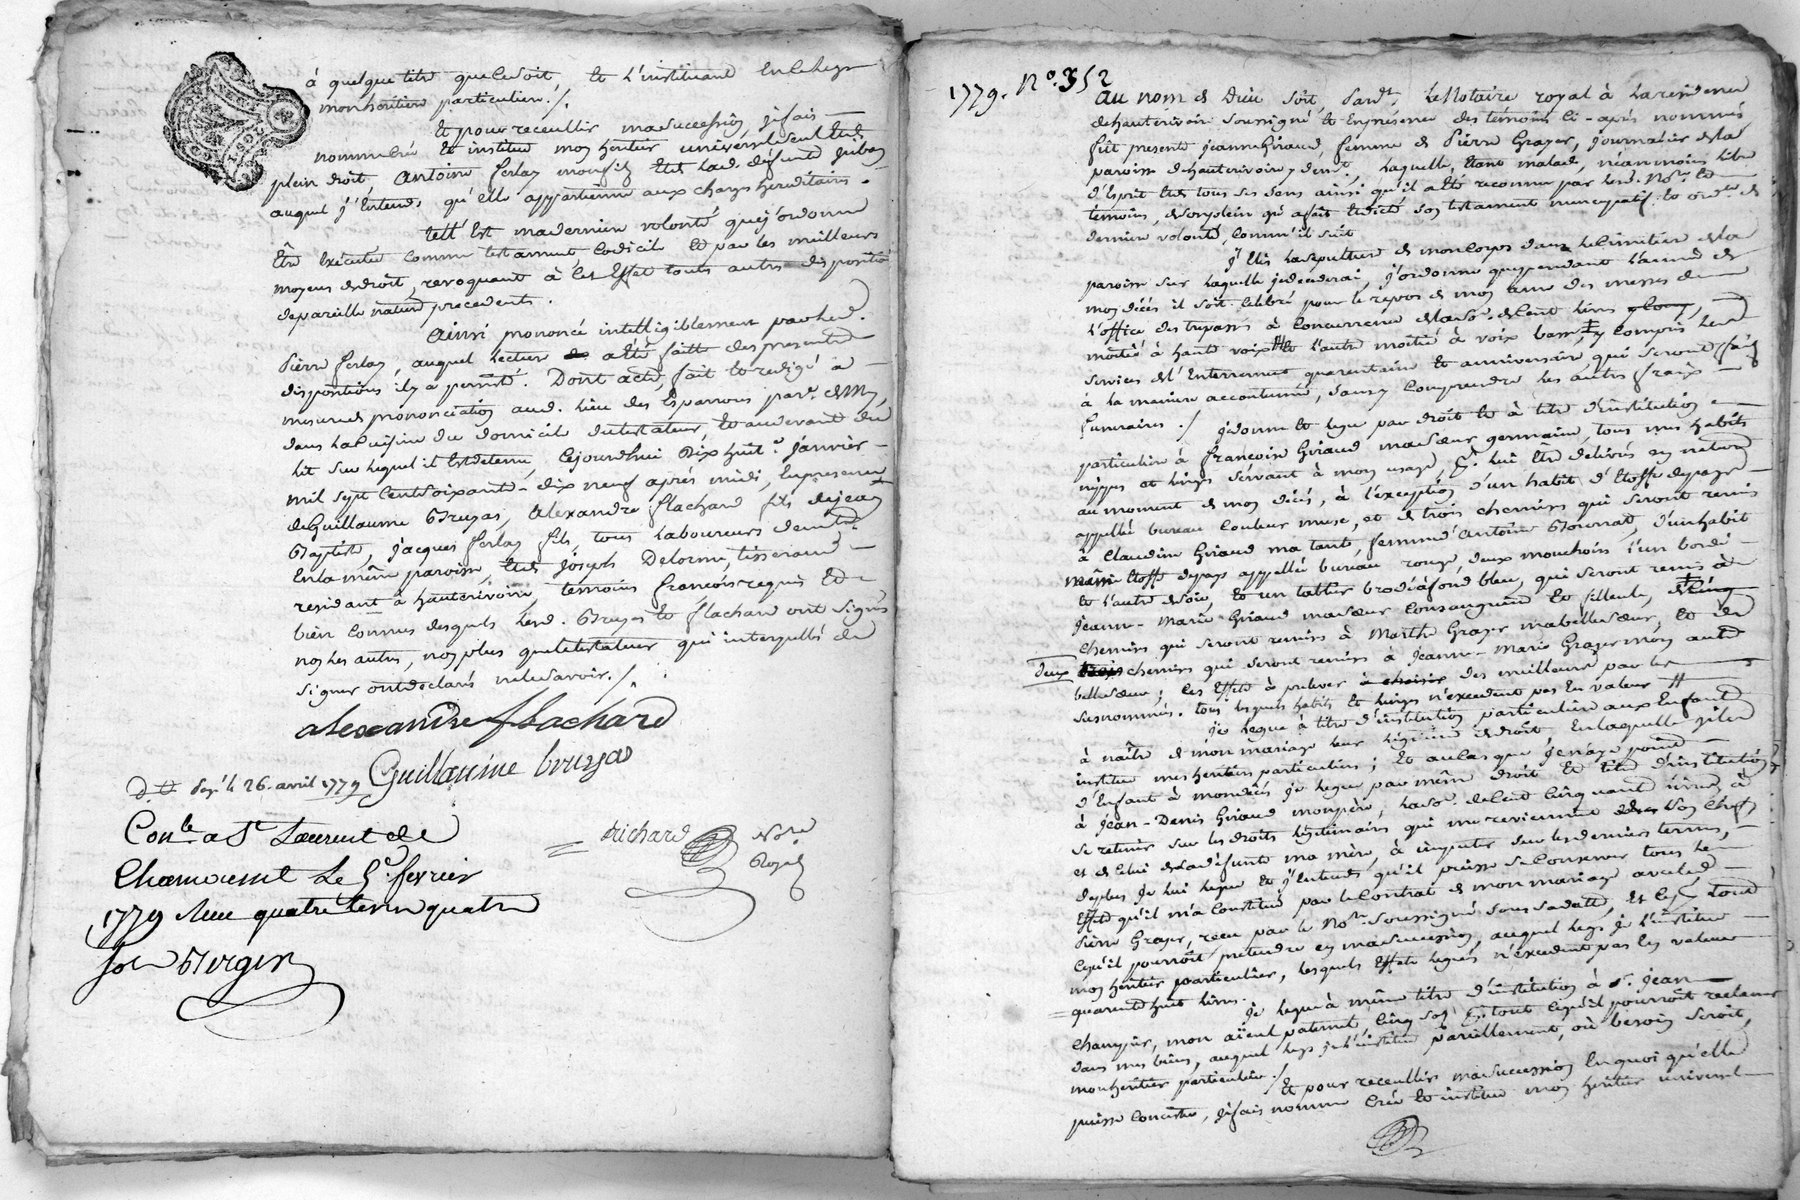 à quelque titre que ce soit, et l'instituant en ce legs
mon héritier particulier ./.
Et pour receuillir ma succession, je fais
nomme crée et institue mon héritier universel seul et de
plein droit, Antoine ferlay mon fils et de lad. défunte
auquel j'entends qu'elle appartienne aux charges hereditaires.
telle Est ma dernière volonté que j'ordonne
Être Exécutée comme testament, codicile et par les meilleurs
moyens de droit, revoquant à cet Effet toutes autres dispositions
de pareille nature precedentes.
Ainsi prononcé intelligiblement par led.
Pierre ferlay, auquel lecture a été faitte des presentes
dispositions il y a persisté. Dont acte, fait et redigé à
mesure de prononciation aud. lieu des Esparrous par.
dans la Cuisine du domicile du testateur et au devant du
lit sur lequel il Est detenu, Cejourdhui Dix huit. Janvier
mil sept Cent soixante-dix neuf après midi, En presence
de Guillaume Bruyas, Alexandre flachard fils de jean
Baptiste, jacques ferlay fils, tous laboureurs de
En la même paroisse, et de joseph Delorme, tisserand
residant à hauterivoire, temoins francois requis et
bien connus desquels led. Bruyas et flachard ont signés
non les autres, non plus que le testateur qui interpellés de
signer ont declaré ne le savoir ./.
alexandre flachard
Guillaume bruyas
le 26 avril 1779
Con.le a St Laurent de
Chamousset Le 5. fevrier
1779
Berger
Richard No.re
Royal
1779. No. 352
Au nom de Dieu soit, Pard.t Le Notaire royal à la residence
de hauterivoire soussigné et En presence des temoins ci-après nommés
fût presente jeanne Giraud, femme de Pierre Grayer, journalier de la
paroisse d'hauterivoire y dem.t, laquelle, Etant malade, néanmoins libre
d'Esprit et de tous ses sens ainsi qu'il a été reconnu par led. No.re et
temoins, de son plein gré a fait et dicté son testament nuncupatif et ord.re de
derniere volonté, comme il suit
J'Elis la sepulture de mon Corps dans le Cimitiere de la
paroisse sur laquelle je decederai, j'ordonne que pendant l'année de
mon décès il soit Celebré pour le repos de mon ame des messes de
l'office des trepassés à Concurrence de la so. de Cent livres
moitié à haute voix et l'autre moitié à voix basse, y compris les
services de l'Enterrement quarantaine et anniversaire, qui seront fais
à la maniere accoutumée, sans y comprendre les autres fraix
funeraires ./. je donne et legue par droit et à titre d'institution
particuliere à francoise Giraud ma sœur germaine, tous mes habits
nippes et linges servant à mon usage, p.r lui Etre delivrés en nature
au moment de mon décès, à l'exception d'un habit d'Etoffe de pays
appellé bureau Couleur muse, et de trois chemises qui seront remis
à Claudine Giraud ma tante, femme d'Antoine Bournat, d'un habit
même Etoffe de pays appellé bureau rouge, deux mouchoirs l'un bordé
et l'autre de soie, et un tablier brodé à fond bleu, qui seront remis à
jeanne-Marie Giraud ma sœur Consanguine et filleule,
chemises qui seront remises à Marthe Grayer ma belle sœur, et de
deux chemises qui seront remises à Jeanne-Marie Grayer mon autre
belle sœur, ces Effets à prelever des meilleurs par les
susnommés. tous lesquels habits et linges n'excedent pas En valeur
je legue à titre d'institution particuliere aux Enfants
à naître de mon mariage leur legitime de droit, En laquelle je les
institue mes heritiers particuliers; Et au cas que je n'aye point
d'Enfant à mon décès je legue par même droit et titre d'institution
à jean-Denis Giraud mon père, la so. de Cent Cinquante livres à
se retenir sur les droits legitimaires qui me reviennent de son Chef,
et de Celui de la défunte ma mère, à imputer sur les derniers termes,
de plus je lui legue et j'entends, qu'il puisse se Conserver tous les
Effets qu'il m'a Constitué par le Contrat de mon mariage avec led.
Pierre Grayer, recu par le No.re soussigné sous sa datte, Et ce p.r tout
Ce qu'il pourroit pretendre en ma succession, auquel legs je l'institue
mon héritier particulier, lesquels Effets legués n'excedent pas la valeur
quarente huit livres.
Je legue à même titre d'institution à s.r jean
Champier, mon aïeul paternel, Cinq sols p.r tout Ce qu'il pourroit reclamer
dans mes biens, auquel legs je l'institue pareillement, où besoin seroit,
mon héritier particulier ./.
Et pour receuillir ma succession En quoi qu'elle
puisse Consister, je fais nomme Crée et institue mon héritier universel